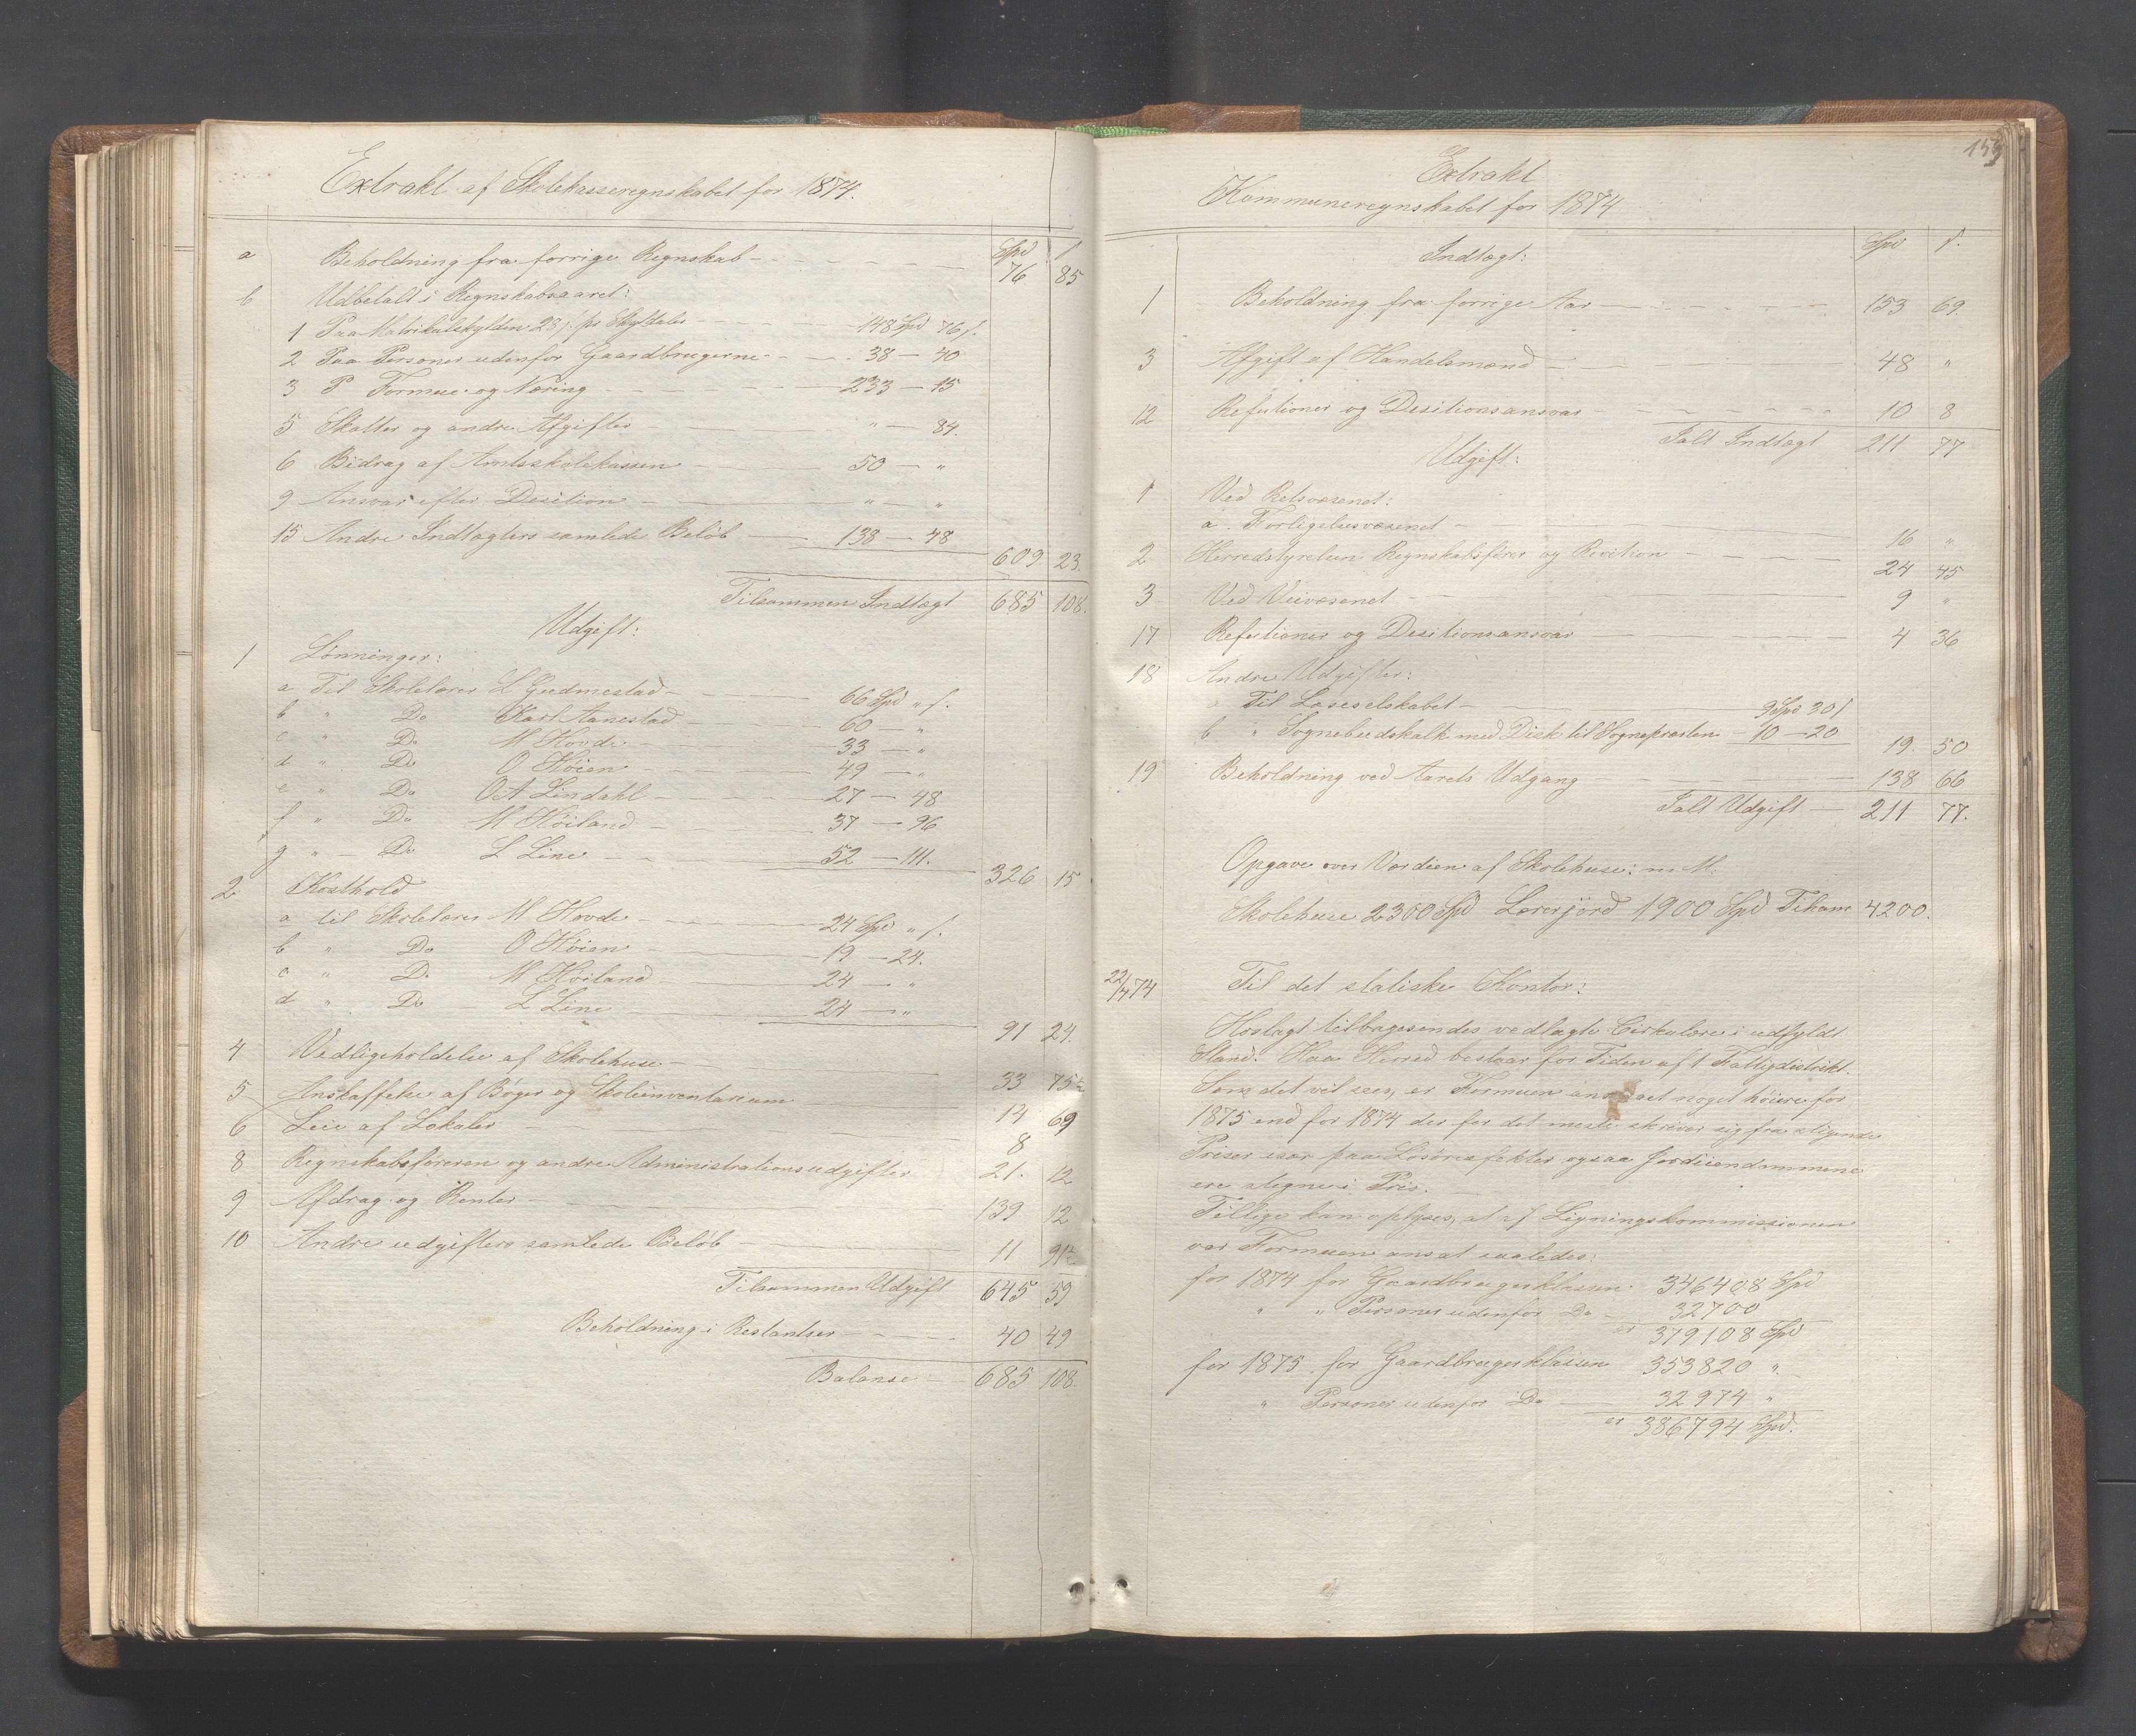 Extrakt af Skolekasseregnskabet for 1874.
Spd f
a Beholdning fra forrige Regnskab 76 85
b Udbetalt i Regnskabsaaret:
1 Paa Matrikulskylden 28 f. pr Skyldaler 148 Spd 76 f.
2 Paa Personer udenfor Gaardbrugerne 38 — 40
3 P Formue og Næring 233 — 15
5 Skatter og andre Afgifter " — 84.
6 Bidrag af Amtsskolekassen 50 — "
9 Ansvar efter Desition " — "
15 Andre Indtægters samlede Beløb 138 — 48
609 23.
Tilsammen Indtægt 685 108.
Udgift:
1 Lønninger:
a Til Skolelærer L Gudmestad 66 Spd " f.
b " Do Karl Aanestad 60 — "
c " Do M Hovde 33 — "
d " Do O Høien 49 — "
e " Do O A Lindahl 27 — 48
f " Do M Høiland 37 — 96
g " — Do L Line 52 — 111.
326 15
2. Kosthold
a til Skolelærer M Hovde 24 Spd " f.
b " Do O Høien 19 — 24.
c " Do M Høiland 24 — "
d " Do L Line 24 — "
91 24.
4 Vedligeholdelse af Skolehuse 33 75½
5 Anskaffelse af Bøger og Skoleinventareum 14 69
6 Leie af Lokaler 8
8 Regnskabsføreren og andre Administrationsudgifter 21. 12
9 Afdrag og Renter 139 12
10 Andre udgifters samlede Beløb 11 91½
Tilsammen Udgift 645 59
Beholdning i Restantser 40 49
Balanse 685 108.
159
Extrakt
Kommuneregnskabet for 1874
Indtægt: Spd f.
1 Beholdning fra forrige Aar 153 69.
3 Afgift af Handelsmænd 48 "
12 Refutioner og Desitionsansvar 10 8
Ialt Indtægt 211 77
Udgift:
1 Ved Retsvæsenet:
a. Forligelsesvæsenet 16 "
2 Herredstyrelsen Regnskabsfører og Revition 24 45
3 Ved Veivæsenet 9 "
17 Refutioner og Desitionsansvar 4 36
18 Andre Udgifter:
a Til Læseselskabet 9 Spd 30 f
b " Sognebudskalk med Disk til Sognepræsten 10 — 20
19. 50
19 Beholdning ved Aarets Udgang 138 66
Ialt Udgift 211 77.
Opgave over Værdien af Skolehuse: m M.
Skolehuse 2300 Spd Lærerjord 1900 Spd Tilsam 4200.
22/7 74 Til det statiske Kontor:
Hoslagt tilbagesendes vedlagte Cirkulære i udfyldt
Stand. Haa Herred bestaar for Tiden af 1 Fattigdistrikt.
Som det vil sees, er Formuen ansat noget høiere for
1875 end for 1874 der for det meste skriver sig fra stigende
Priser især paa Løsøreefekter ogsaa Jordeiendommene
ere stegne i Pris.
Tillige kan oplyses, at af Ligningskommissionen
var Formuen ansat saaledes:
for 1874 for Gaardbrugerklassen 346408 Spd
" " Personer udenfor Do 32700
er 379108 Spd
for 1875 for Gaardbrugerklassen 353820 "
" Personer udenfor Do 32974 "
er 386794 Spd.